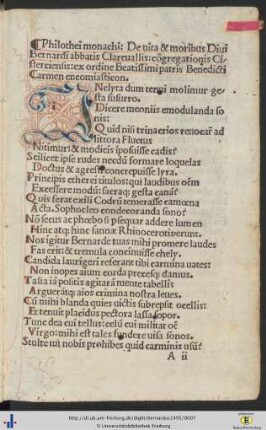 ¶Philothei monachi: De vita & moribus Diui
Bernardi abbatis Clareuallis: cōgregationis Ci
sterciensis: ex ordine Beatissimi patris Benedicti
Carmen encomiasticon.
dum tenui molimur ge
sta susurro.
Dicere menniis emodulanda so
nis:
Quid nisi trinacrios reuocat ad
littora fluctus
Nitimur: & modicis
Scilicet ipse rudes necdū formare loquelas
Doctus & agresti concrepuisse lyra.
Principis etherei titulos: qui laudibus oēm
Excessere modū: sacraq; gesta canā?
Quis ferat exili Codrū temerasse camœna
Acta. Sophocleo condecoranda sono?
Nō secus ac phœbo si psequar addere lumen
Hinc atq; hinc
Nos igitur Bernarde tuas mihi promere laudes
Fas erit: & tremula concinuisse chely.
Candida laurigeri referant tibi carmina vates:
Non inopes eium
Talia iā positis agitarā mente tabellis
Arguerātq; aios crimina nostra leues.
Cū mihi blanda quies victis subrepsit ocellis:
Et tenuit placidus pectora lassa sopor.
Tunc dea cui tellus: celū cui militat oē
Virgo: mihi est tales fundere visa sonos.
Stulte qui nobis prohibes quid carminis vsū?
A ii
http://dl.ub.uni-freiburg.de/diglit/bernardus1495/0007
© Universitätsbibliothek Freiburg